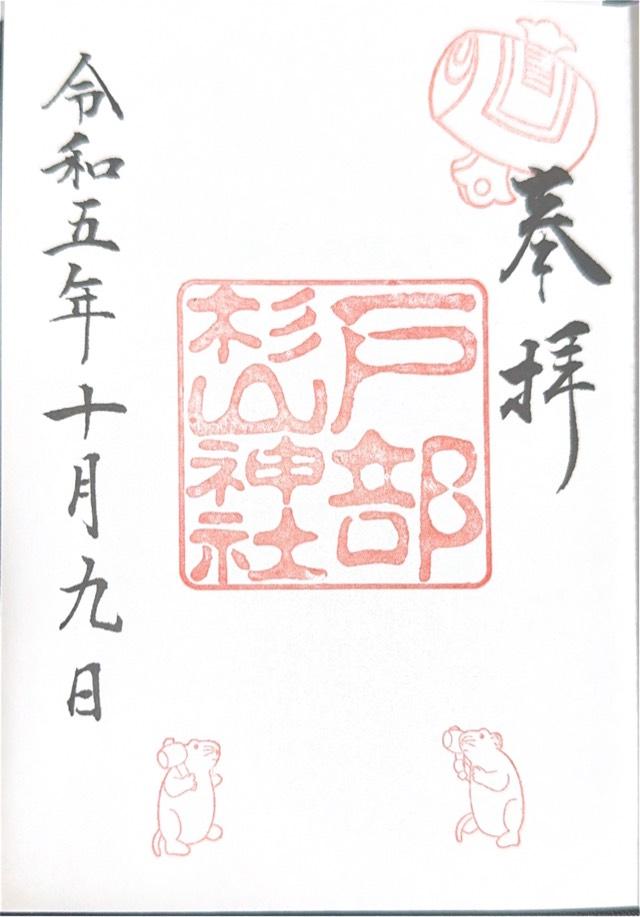 奉拝
戸部
杉山神社
令和五年十月九日